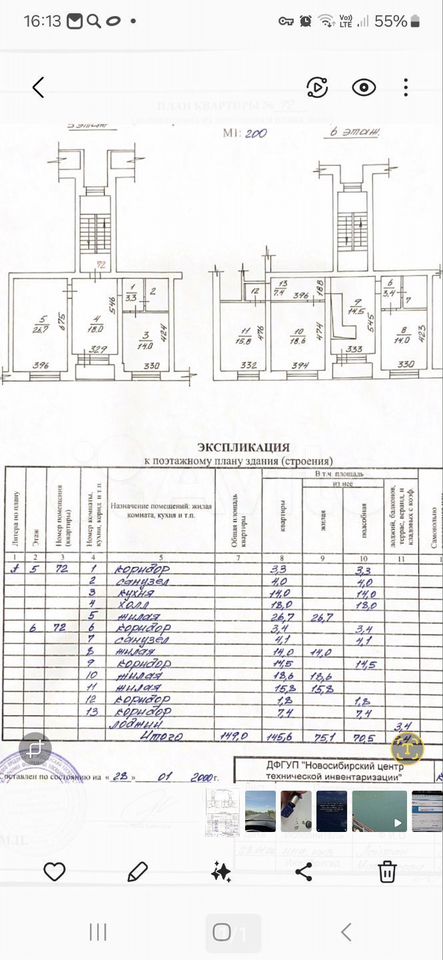 16:13
Vo)) LTE
55%
ПЛАН КВАРТИРЫ № 72
5 этаж
М1: 200
6 этаж
72
1
3.3
2
5
26.7
675
4
18.0
546
3
14.0
424
396
329
330
12
13
7.4
396
188
9
14.5
545
6
3.4
7
11
15.8
476
10
18.6
474
8
14.0
423
332
394
333
330
ЭКСПЛИКАЦИЯ
к поэтажному плану здания (строения)
Литера по плану
Этаж
Номер помещения (квартиры)
Номер комнаты, кухни, корид. и т.п.
Назначение помещений: жилая комната, кухня и т.п.
Общая площадь квартиры
В т.ч. площадь
из нее
квартиры
жилая
подсобная
лоджий, балконов, террас, веранд, и кладовых с коэф.
Самовольно
1 2 3 4 5 7 8 9 10 11
А 5 72 1 коридор 3,3 3,3
2 санузел 4,0 4,0
3 кухня 14,0 14,0
4 холл 18,0 18,0
5 жилая 26,7 26,7
6 72 6 коридор 3,4 3,4
7 санузел 4,1 4,1
8 жилая 14,0 14,0
9 коридор 14,5 14,5
10 жилая 18,6 18,6
11 жилая 15,8 15,8
12 коридор 1,8 1,8
13 коридор 7,4 7,4
лоджий 3,4
Итого 149,0 145,6 75,1 70,5
оставлен по состоянию на « 28 » 01 2000г.
ДФГУП "Новосибирский центр
технической инвентаризации"
М.П.